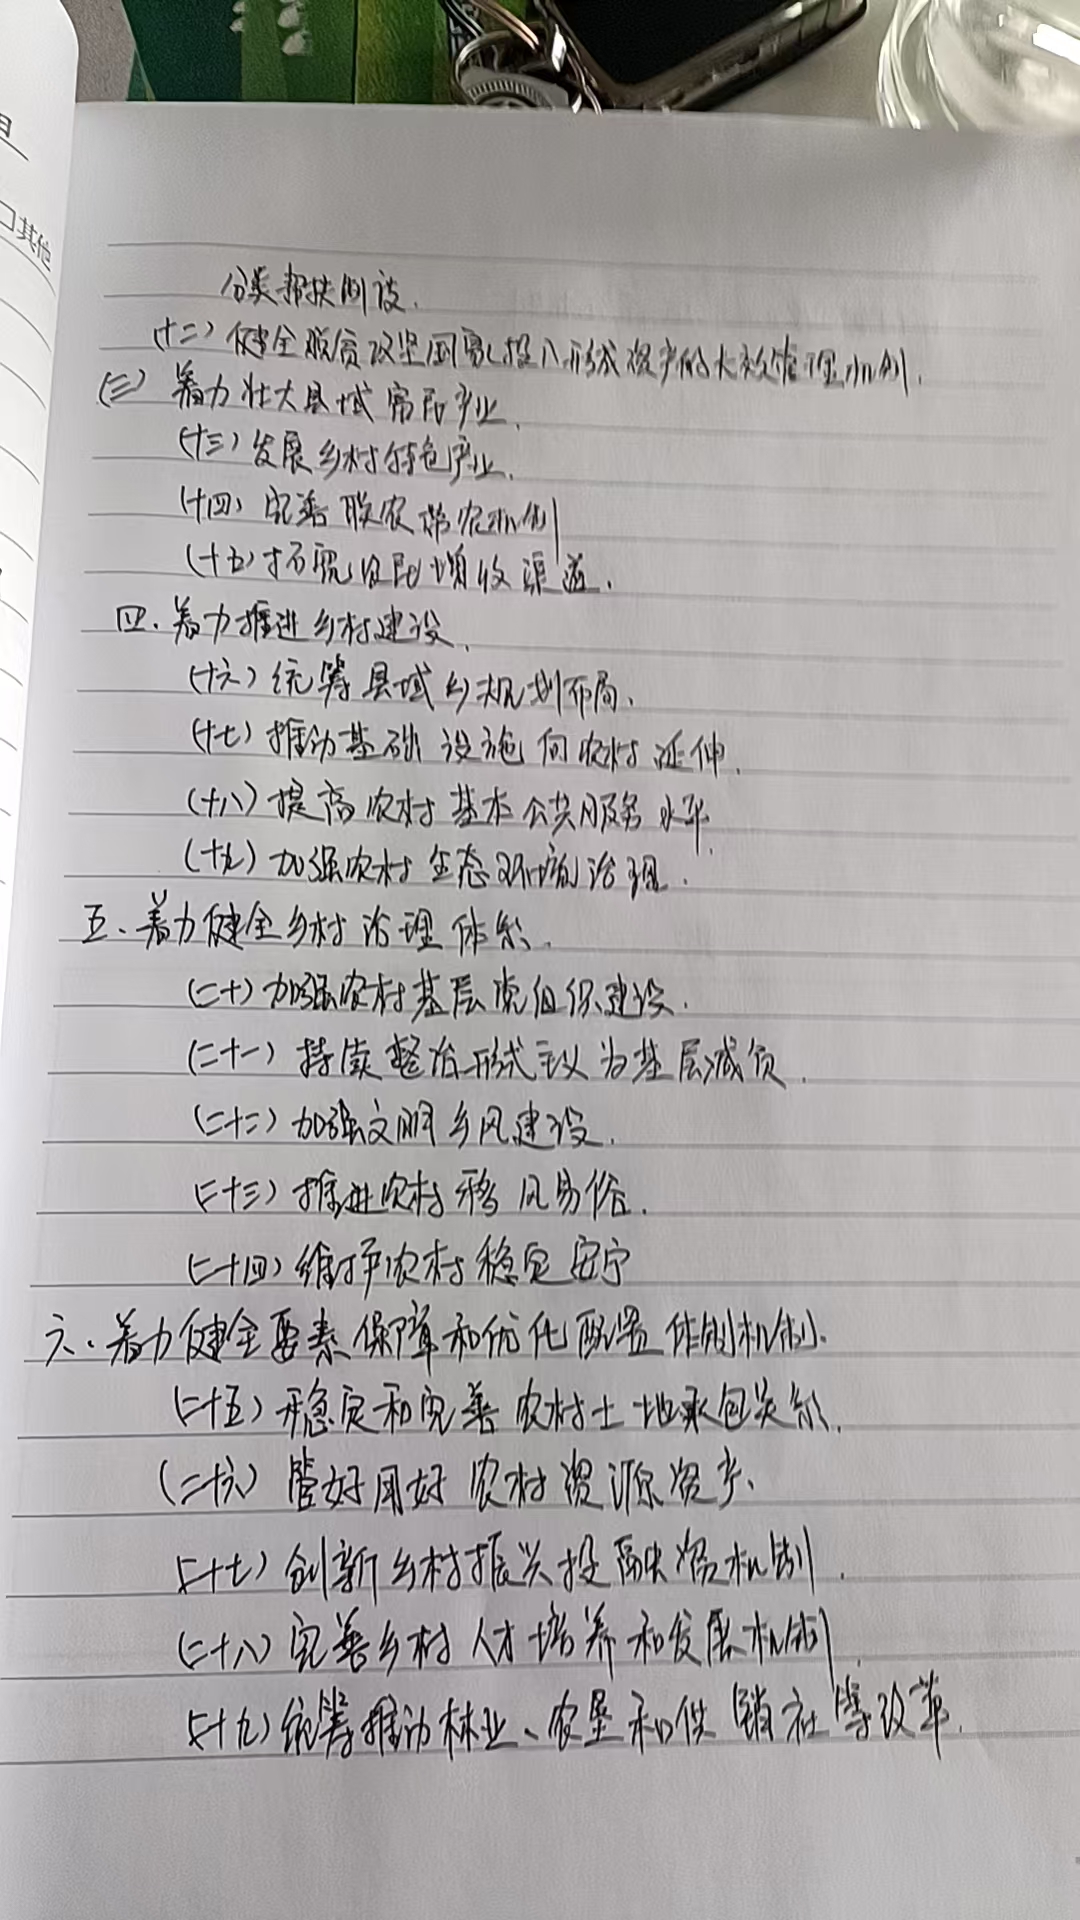 月
口其他
分类帮扶制设.
(十二)健全脱贫攻坚国家投入形成资产的长效管理机制.
(三)着力壮大县域富民产业.
(十三)发展乡村特色产业.
(十四)完善联农带农机制
(十五)拓宽农民增收渠道.
四.着力推进乡村建设.
(十六)统筹县域乡规划布局.
(十七)推动基础设施向农村延伸.
(十八)提高农村基本公共服务水平.
(十九)加强农村生态环境治理.
五.着力健全乡村治理体系.
(二十)加强农村基层党组织建设.
(二十一)持续整治形式主义为基层减负.
(二十二)加强文明乡风建设.
(二十三)推进农村移风易俗.
(二十四)维护农村稳定安宁
六.着力健全要素保障和优化配置体制机制.
(二十五)稳定和完善农村土地承包关系.
(二十六)管好用好农村资源资产.
(二十七)创新乡村振兴投融资机制.
(二十八)完善乡村人才培养和发展机制.
(二十九)统筹推动林业、农垦和供销社等改革.